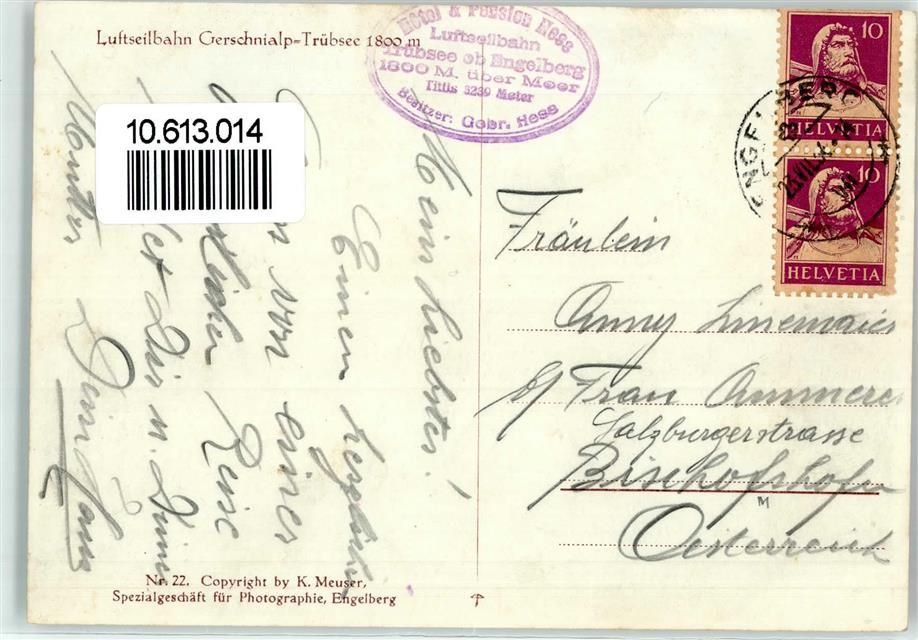 Luftseilbahn Gerschnialp-Trübsee 1800 m
Hôtel & Pension Hess
Luftseilbahn
Trübsee ob Engelberg
1800 M. über Meer
Titlis 3239 Meter
Besitzer: Gebr. Hess
10
HELVETIA
10
HELVETIA
ENGELBERG
10.613.014
Mein Liebstes!
Einen herzlichen
von einer
Reise
Dir u. Deiner
Mutter Dein Hans
Fräulein
Anny Linemaier
b/ Frau Ammerer
Salzburgerstrasse
Bischofshofen
M
Oesterreich
Nr. 22. Copyright by K. Meuser,
Spezialgeschäft für Photographie, Engelberg